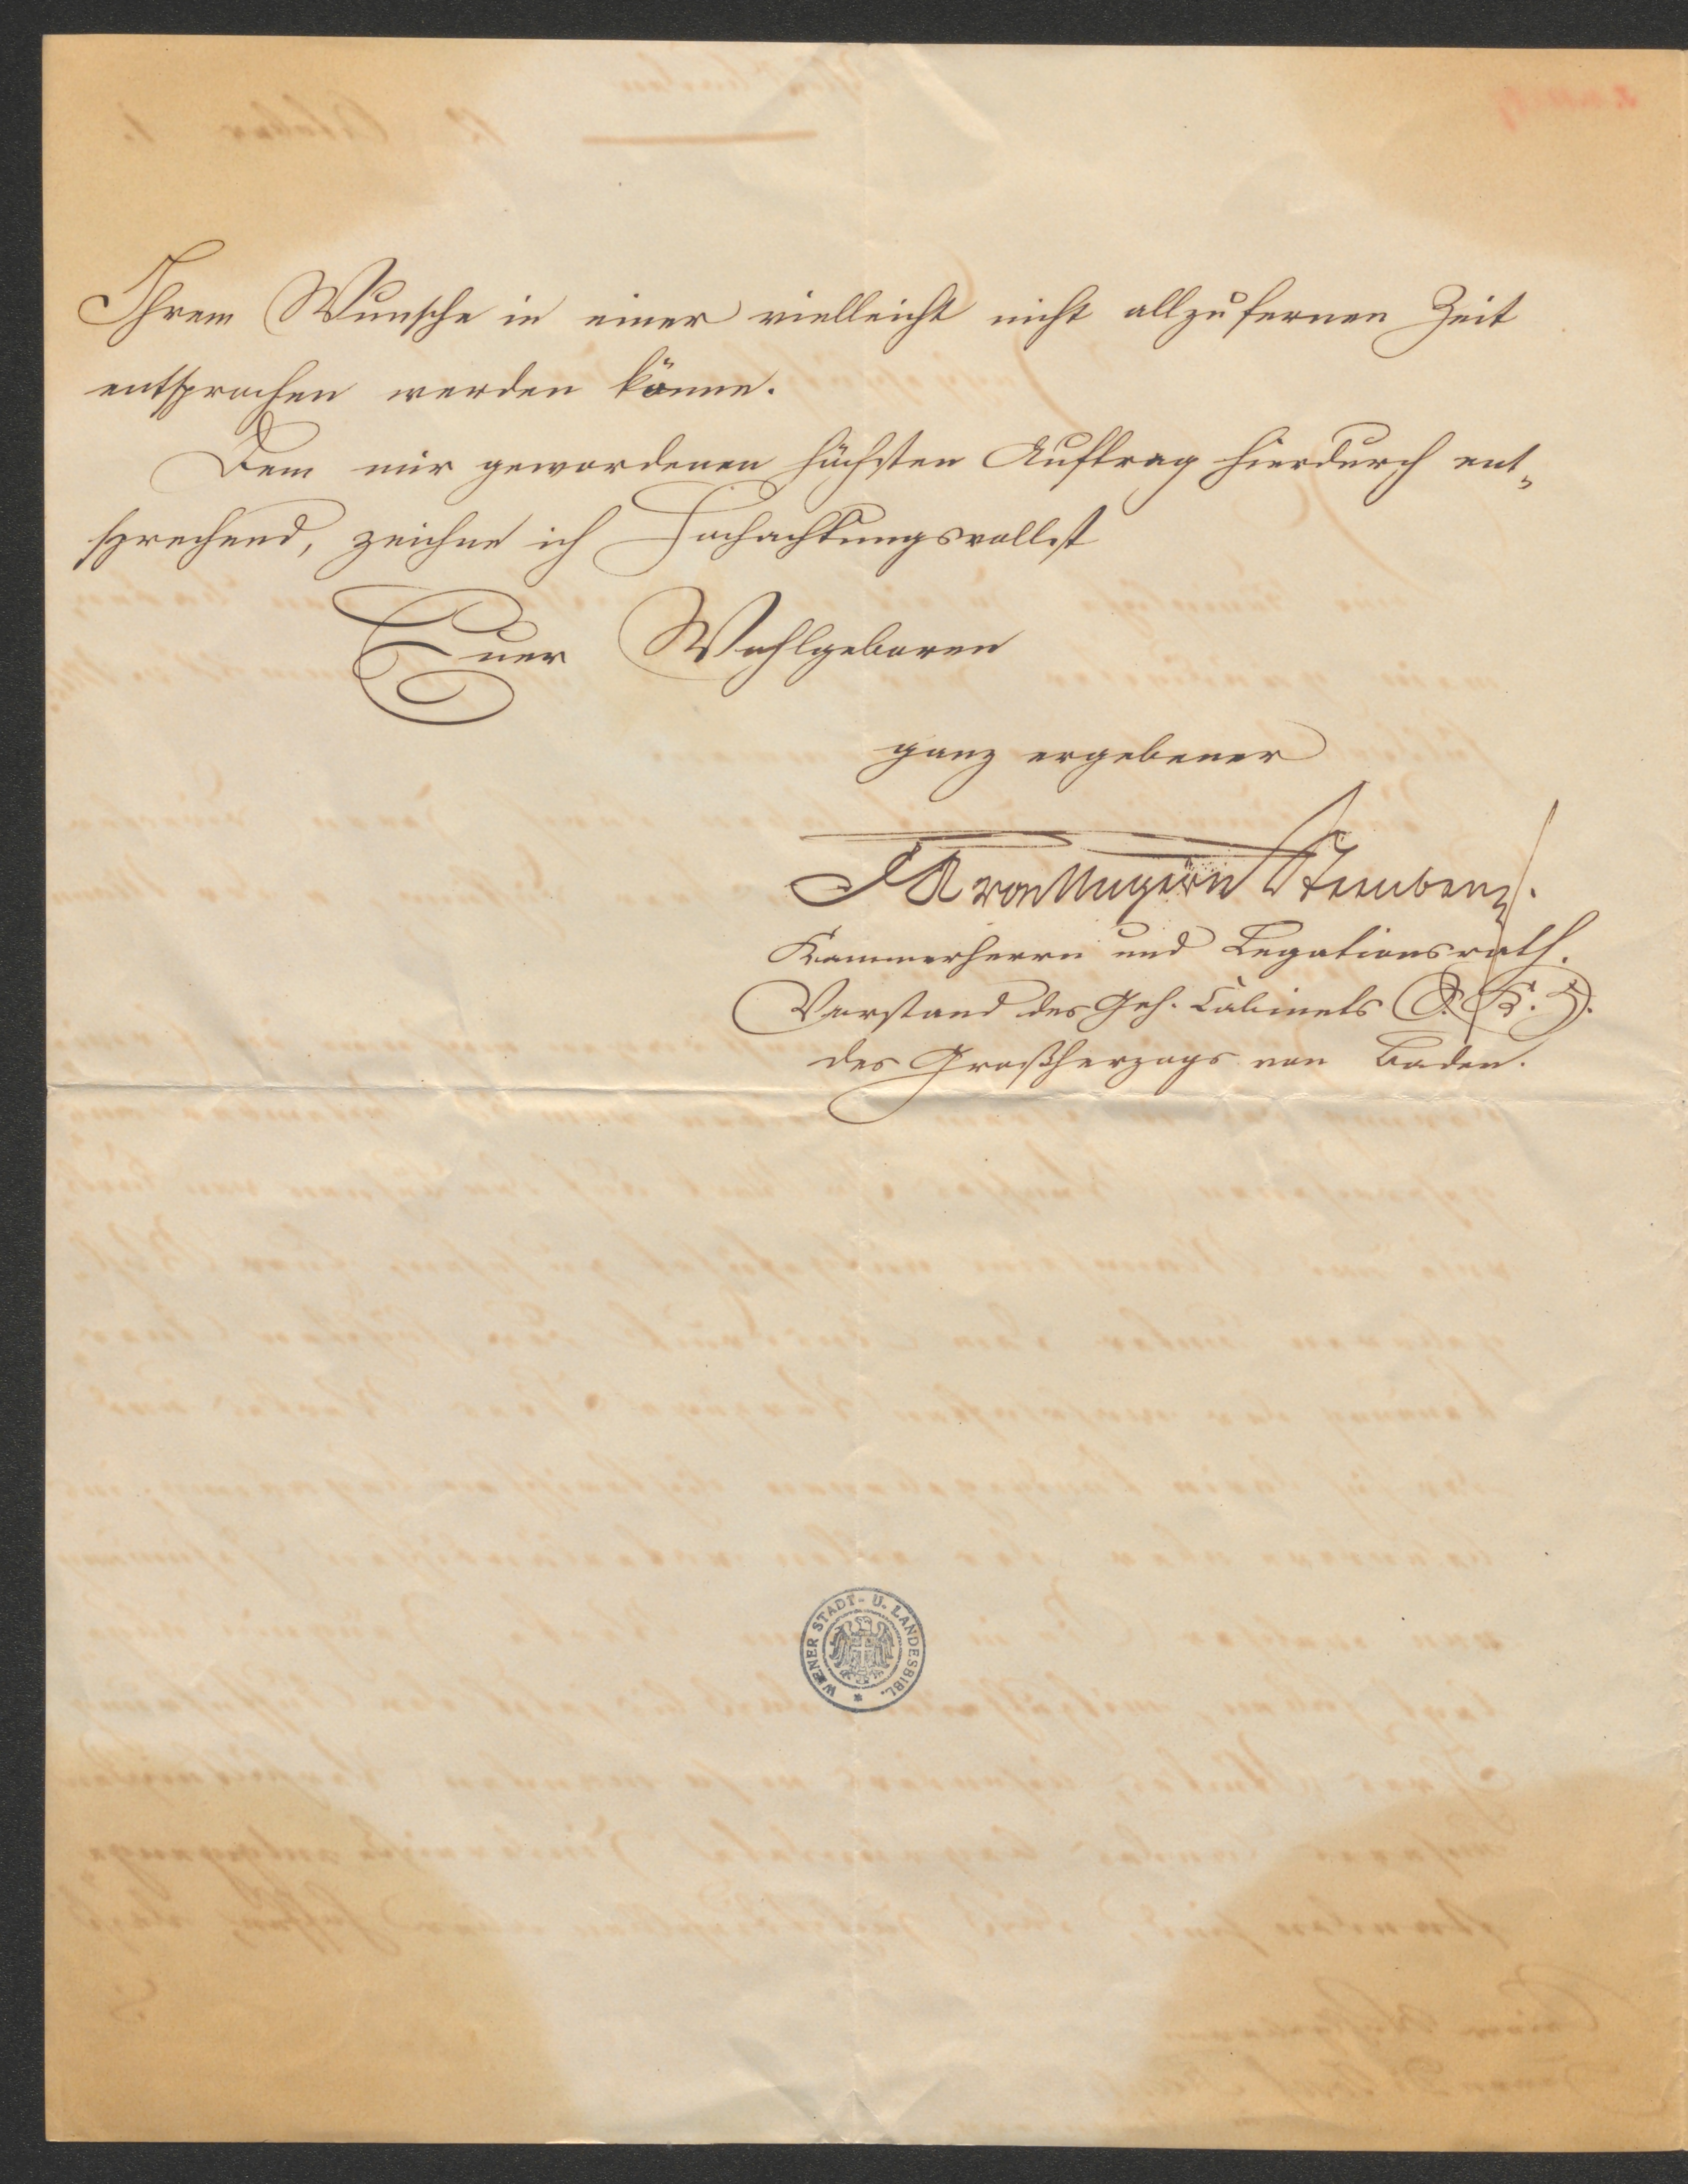 Ihrem Wunsche in einer vielleicht nicht allzufernen Zeit
entsprochen werden könne.
Dem mir gewordenen höchsten Auftrag hierdurch ent„
sprechend, zeichne ich Hochachtungsvollst
Euer Wohlgeboren
ganz ergebener
von Ungern Sternberg.
Kammerherrn und Legationsrath.
Vorstand des Geh. Cabinets S. K. H.
des Großherzogs von Baden.
WIENER STADT- U. LANDESBIBL.